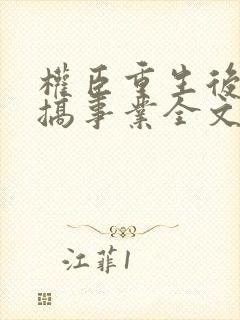 權臣重生後
搞事業全文
江菲1